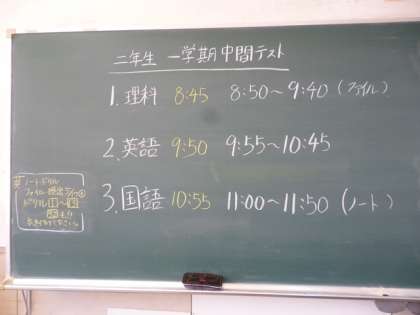 二年生 一学期中間テスト
1. 理科 8:45 8:50～9:40 (ファイル)
2. 英語 9:50 9:55～10:45
3. 国語 10:55 11:00～11:50 (ノート)
英 ノート・ドリル
ファイル 提出
ドリル